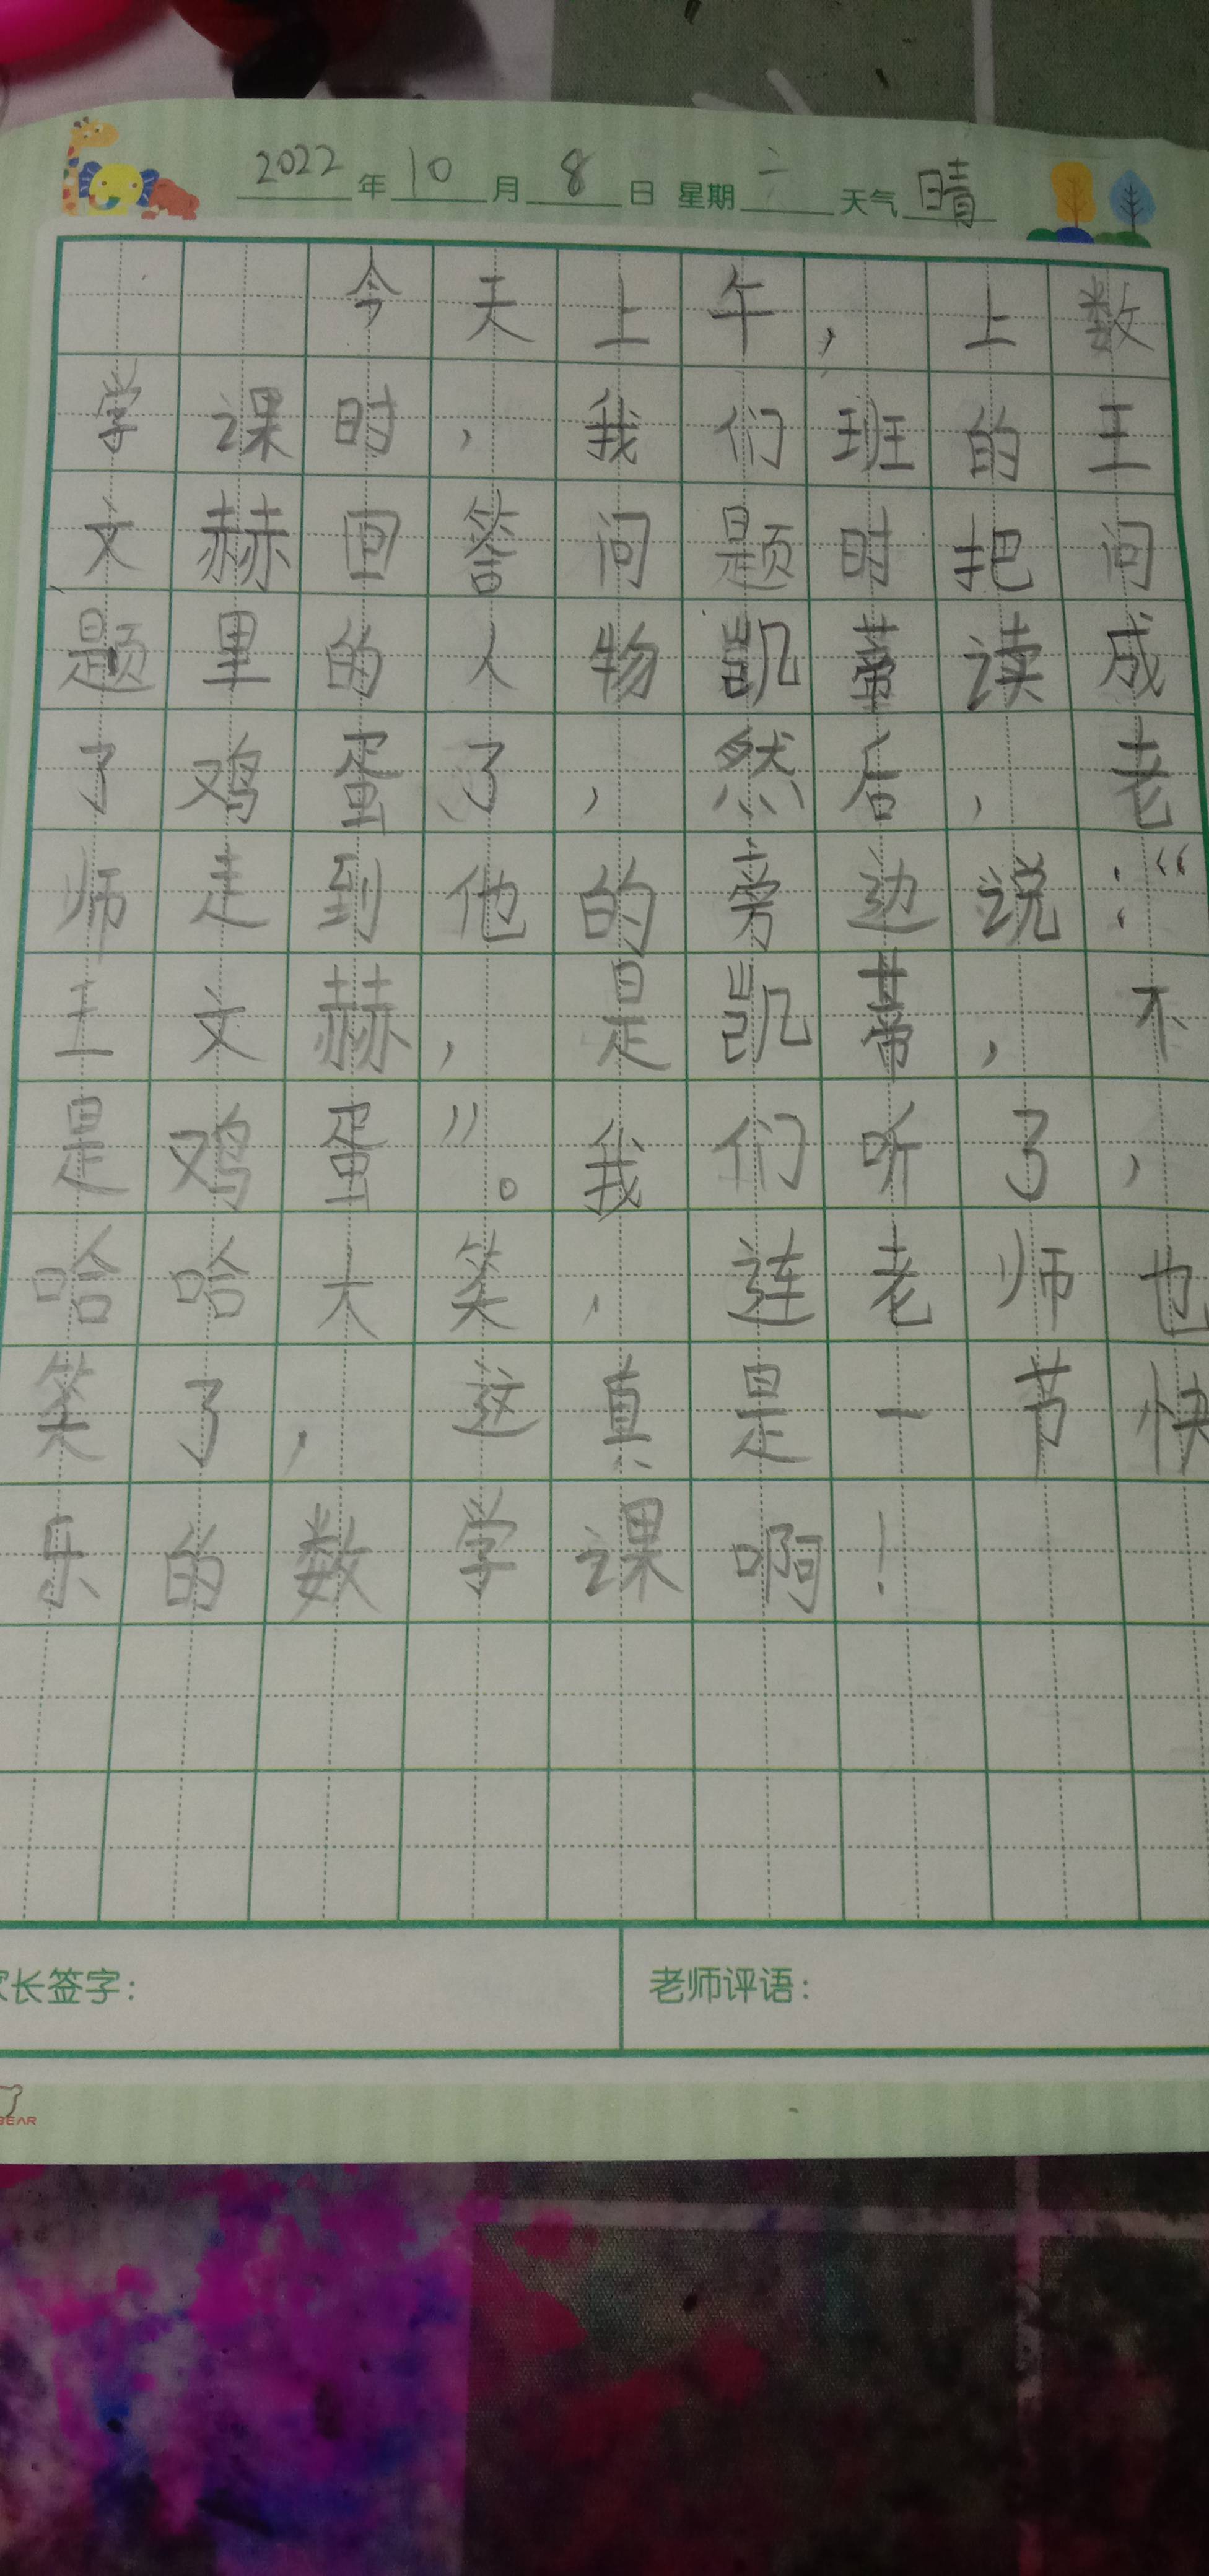 2022年10月8日 星期六 天气晴
今天上午，上数
学课时，我们班的王
文赫回答问题时把问
题里的人物凯蒂读成
了鸡蛋了，然后，老
师走到他的旁边说：“
王文赫，是凯蒂，不
是鸡蛋”。我们听了，
哈哈大笑，连老师也
笑了，这真是一节快
乐的数学课啊！
家长签字： 老师评语：
BEAR